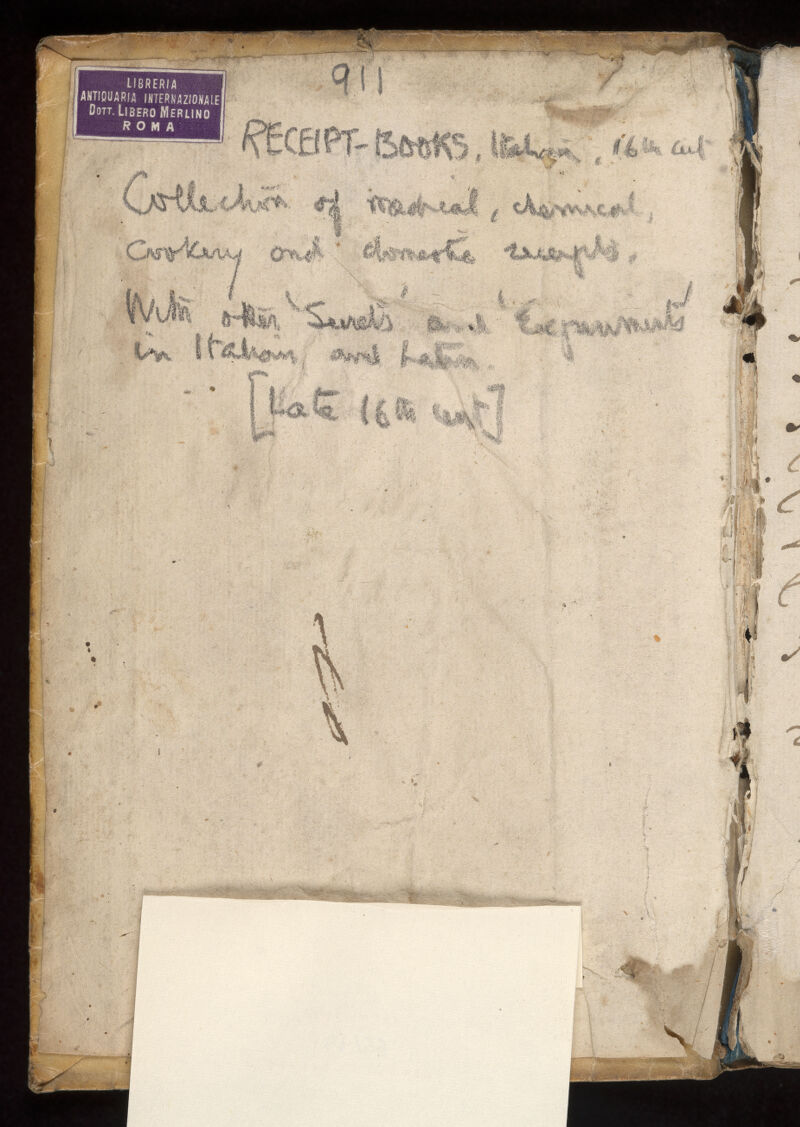 LIBRERIA
ANTIQUARIA INTERNAZIONALE
DOTT. LIBERO MERLINO
ROMA
911
RECEIPT-BOOKS, Italian, 16th cent
Collection of medical, chemical,
cookery and domestic receipts.
With other 'Secrets' and 'Experiments'
in Italian and Latin.
[Late 16th cent]